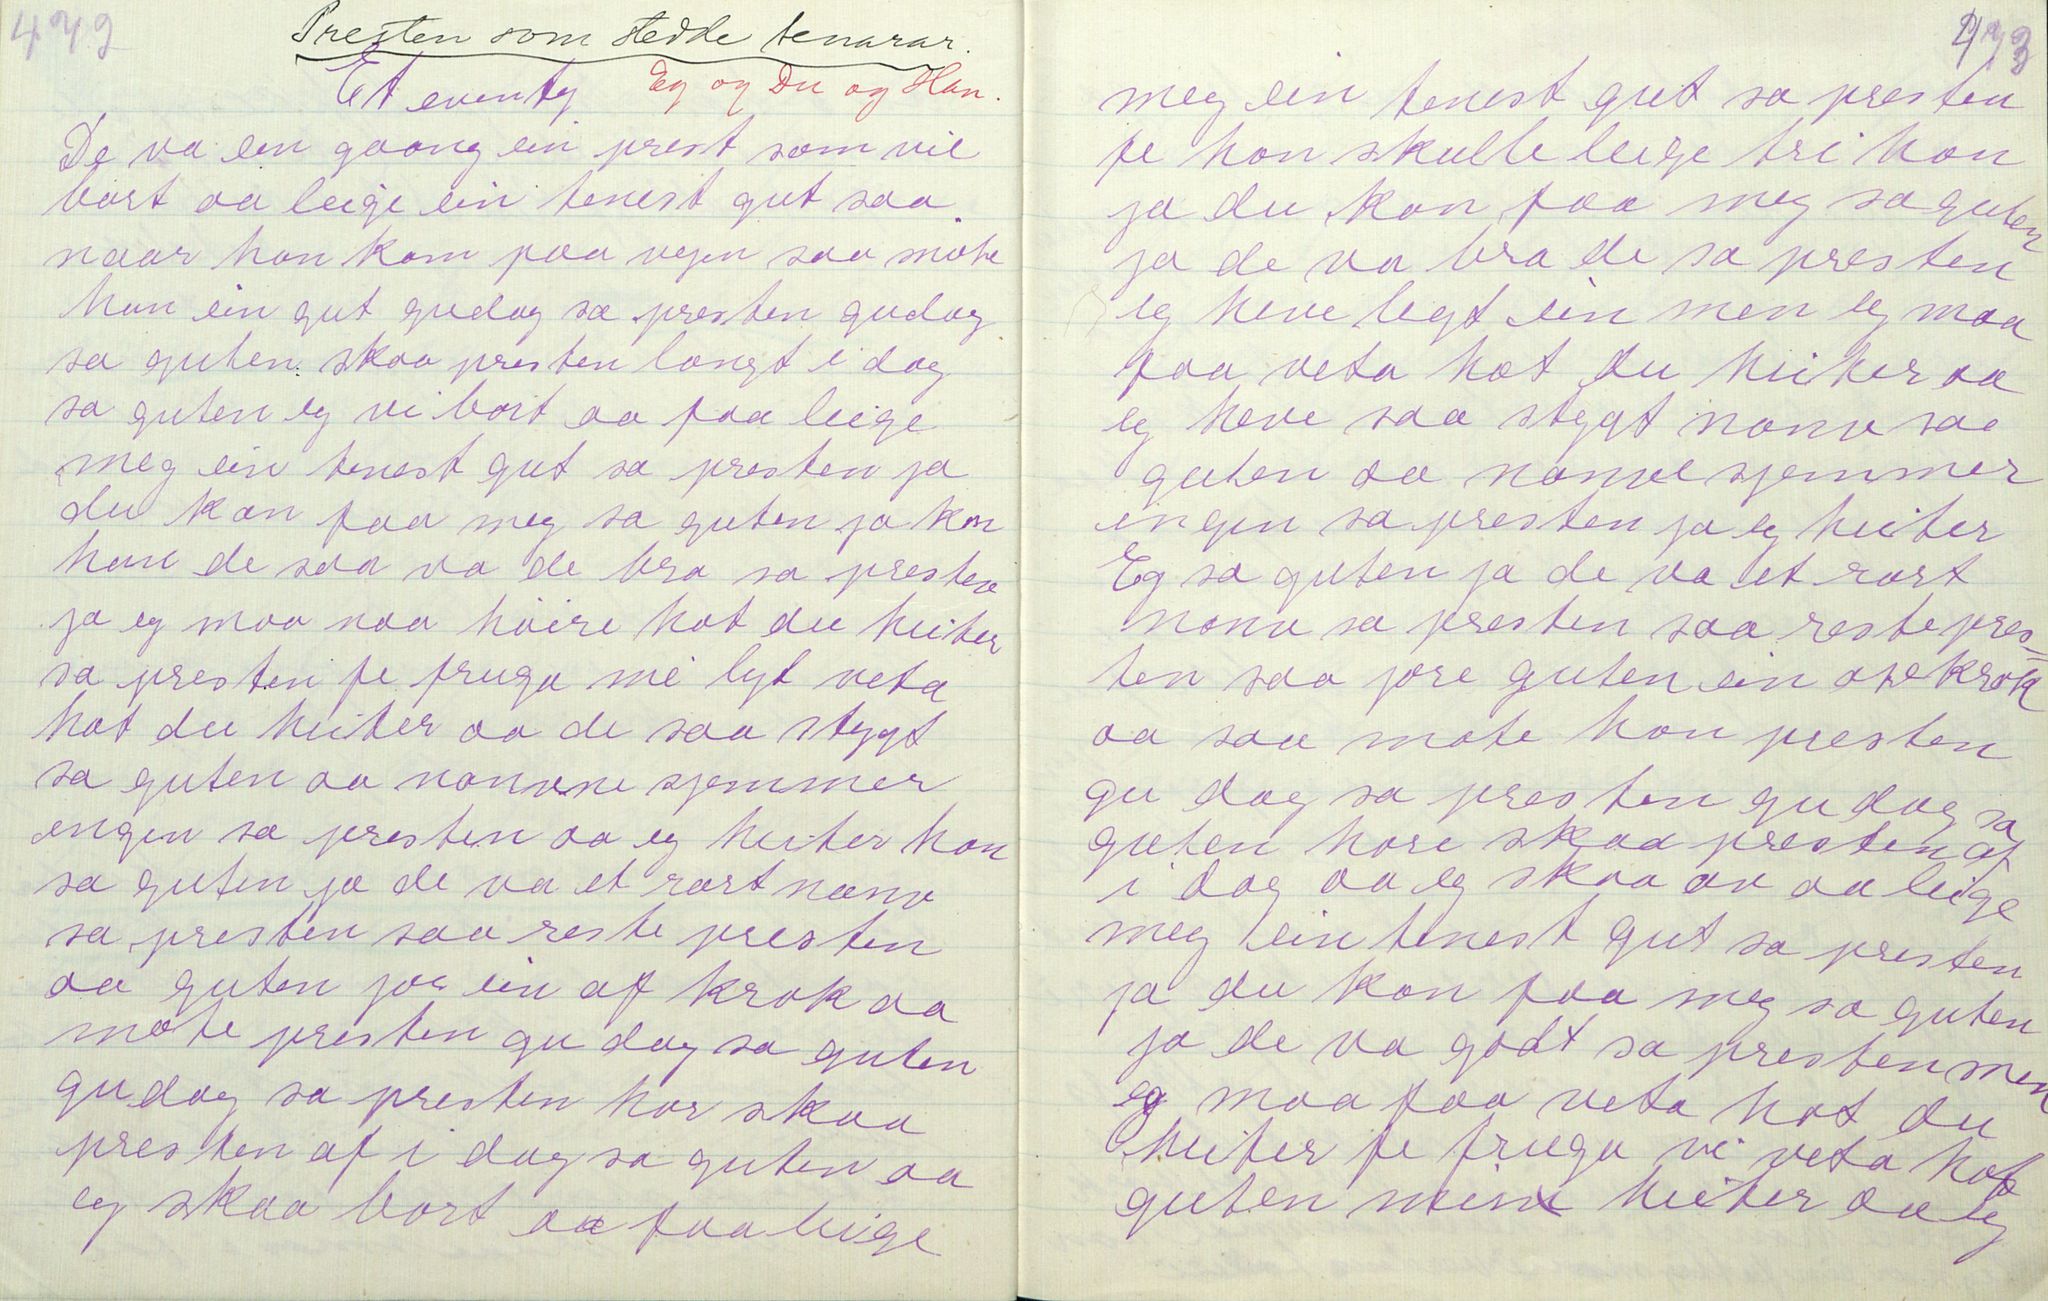 472
Presten som stedde tenarar.
Et eventy Eg og Du og Han.
De va ein gaang ein prest som vil
bort aa leige ein tenest gut saa
naar han kom paa vejen saa møte
han ein gut gudag sa presten gudag
sa guten skaa presten langt i dag
sa guten eg vi bort aa faa leige
meg ein tenest gut sa presten ja
du kan faa meg sa guten ja kan
han de saa va de bra sa presten
ja eg maa naa høire kat du heiter
sa presten fe fruga mi lyt veta
kat du heiter aa de saa stygt
sa guten aa namne sjemmer
engin sa presten aa eg heiter han
sa guten ja de va et rart namn
sa presten saa reste presten
aa guten jor ein af krok aa
møte presten gu dag sa guten
gudag sa presten kor skaa
presten af i dag sa guten aa
eg skaa bort aa faa leige
473
meg ein tenest gut sa presten
fe han skulle leige tri han
ja du kan faa meg sa guten
ja de va bra de sa presten
eg heve legt ein men eg maa
faa veta kat du heiter aa
eg heve saa stygt namn sa
guten aa namne sjemmer
engin sa presten ja eg heiter
Eg sa guten ja de va et rart
namn sa presten saa reste pres=
ten saa jore guten ein afekrok
aa saa møte han presten
gu dag sa presten gu dag sa
guten kore skaa presten af
i dag aa eg skaa av aa leige
meg ein tenest gut sa presten
ja du kan faa meg sa guten
ja de va godt sa presten men
eg maa faa veta kat du
heiter fe fruga vi veta kat
guten min heiter aa eg